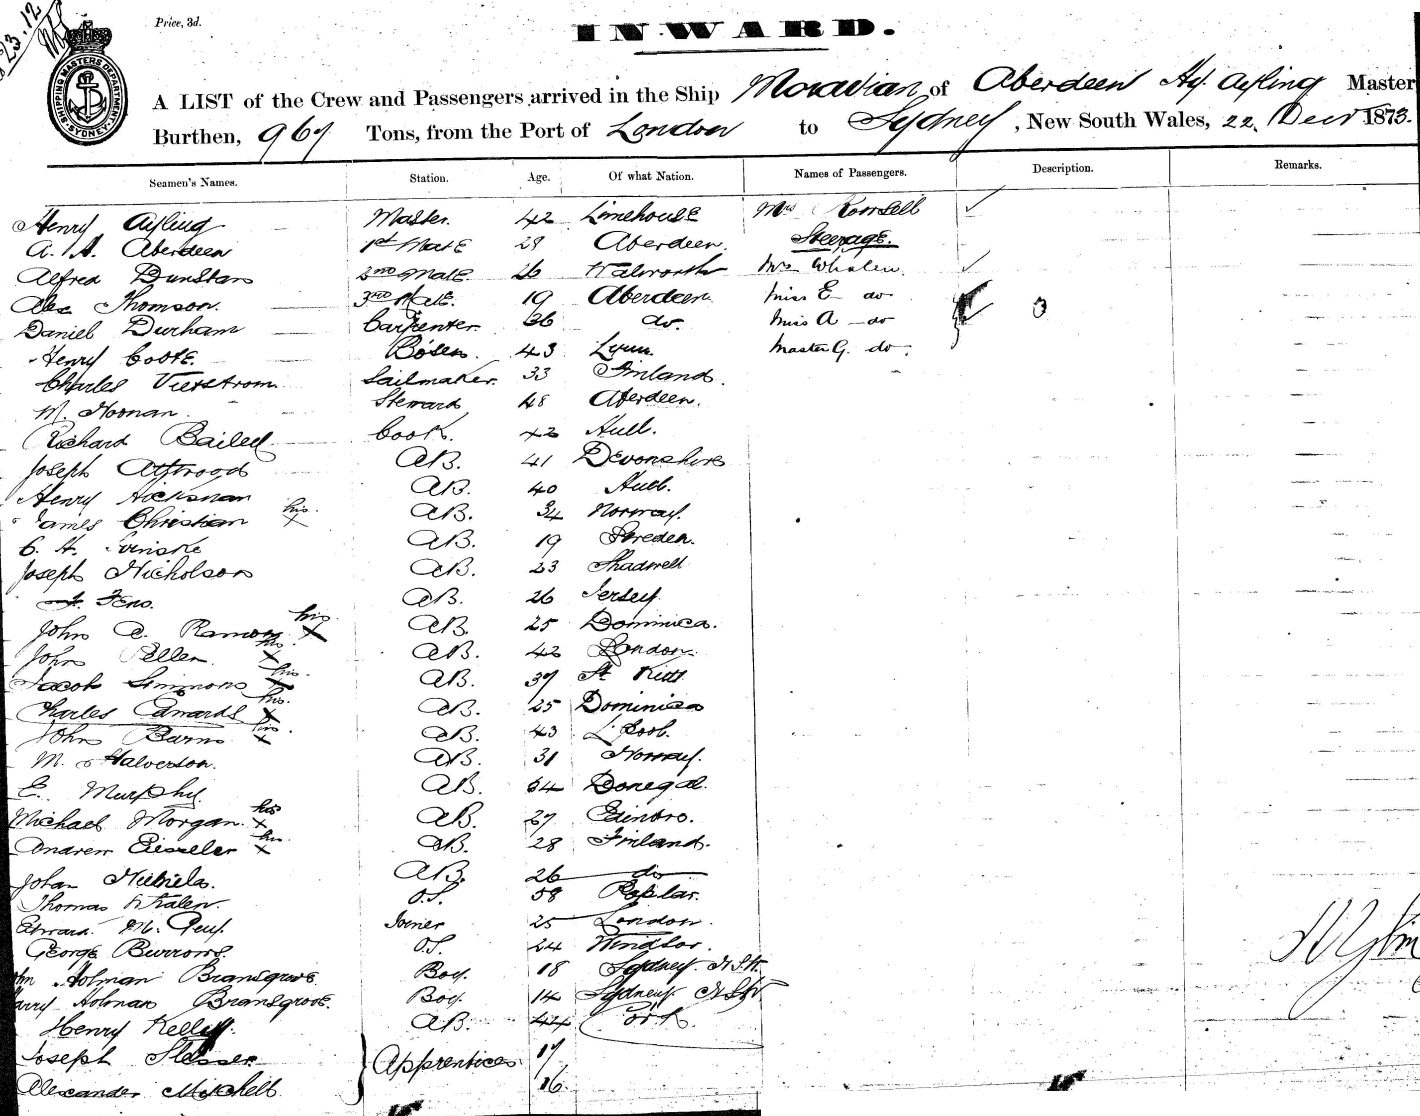 23.12
Price, 3d.
INWARD.
SHIPPING MASTERS DEPARTMENT SYDNEY
A LIST of the Crew and Passengers arrived in the Ship Moravian of Aberdeen Hy. Ayling Master
Burthen, 967 Tons, from the Port of London to Sydney, New South Wales, 22. Decr 1873.
Seamen's Names. Station. Age. Of what Nation. Names of Passengers. Description. Remarks.
Henry Ayling Master. 42 Limehouse Mrs Rowsell
A. A. Aberdeen 1st Mate 28 Aberdeen. Steerage.
Alfred Dunstan 2nd Mate 26 Walworth Mrs Whalen.
Alex Thomson. 3rd Mate. 19 Aberdeen Miss E do 3
Daniel Durham Carpenter 36 do. Miss A do
Henry Coote. Bosen. 43 Lynn. Master G. do.
Charles Vierstrom Sailmaker. 33 Finland.
M. Noonan Steward 48 Aberdeen.
Richard Bailey Cook. 42 Hull.
Joseph Attwood AB. 41 Devonshire
Henry Hickman AB. 40 Hull.
James Christian his X AB. 34 Norway.
C. H. AB. 19 Sweden.
Joseph Nicholson AB. 23 Shadwell
Feno. AB. 26 Jersey.
John A. Ramon his X AB. 25 Dominica.
John Pellen his X AB. 42 London.
Jacob Simmons his X AB. 37 St Kitt
Charles Edwards his X AB. 25 Dominica
John Burns his X AB. 43 L'Pool.
M. Halverson. AB. 31 Norway.
E. Murphy. AB. 34 Donegal.
Michael Morgan. his X AB. 27 Edinbro.
Andrew Eiszeler his X AB. 28 Finland.
Johan AB. 26 do
Thomas Whalen. O.S. 58 Poplar.
Edward. M. Joiner 25 London.
George Burrows. O.S. 24 Windsor.
Holman Bransgrove Boy. 18 Sydney. N.S.W.
Harry Holman Bransgrove. Boy. 14 Sydney N.S.W.
Henry Kelly. AB. 44 Cork.
Joseph Slesser. Apprentices 17
Alexander Mitchell 16.